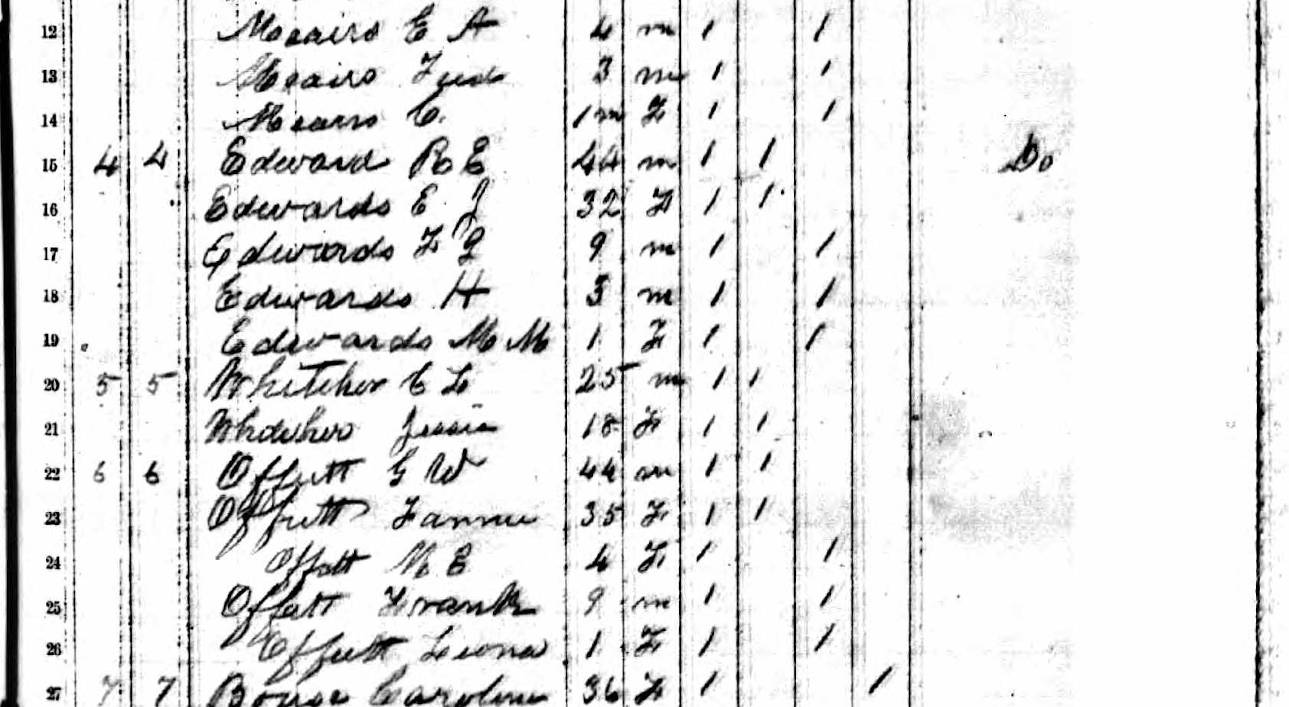 12 E A 4 m 1 1
13 3 m 1 1
14 C. 1m F 1 1
15 4 4 Edward R E 44 m 1 1 Do
16 Edwards E J 32 F 1 1
17 Edwards F G 9 m 1 1
18 Edwards H 3 m 1 1
19 Edwards M M 1 F 1 1
20 5 5 Whitcher C L 25 m 1 1
21 Jessie 18 F 1 1
22 6 6 Offutt G W 44 m 1 1
23 Offutt Fannie 35 F 1 1
24 Offott M E 4 F 1 1
25 Offett Frank 9 m 1 1
26 Offutt Leona 1 F 1 1
27 7 7 Caroline 36 F 1 1